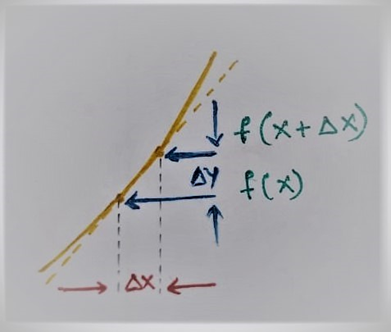 f(x+Δx)
Δy
f(x)
Δx